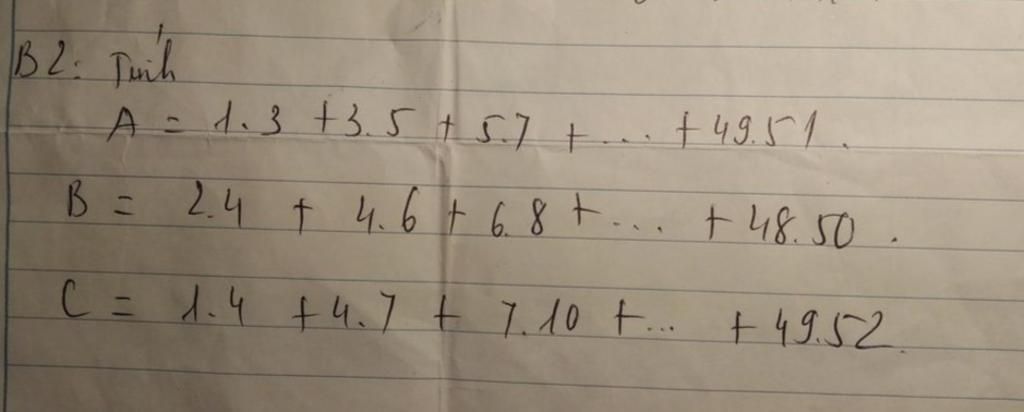 B2: Tính
A = 1.3 + 3.5 + 5.7 + ... + 49.51.
B = 2.4 + 4.6 + 6.8 + ... + 48.50.
C = 1.4 + 4.7 + 7.10 + ... + 49.52.